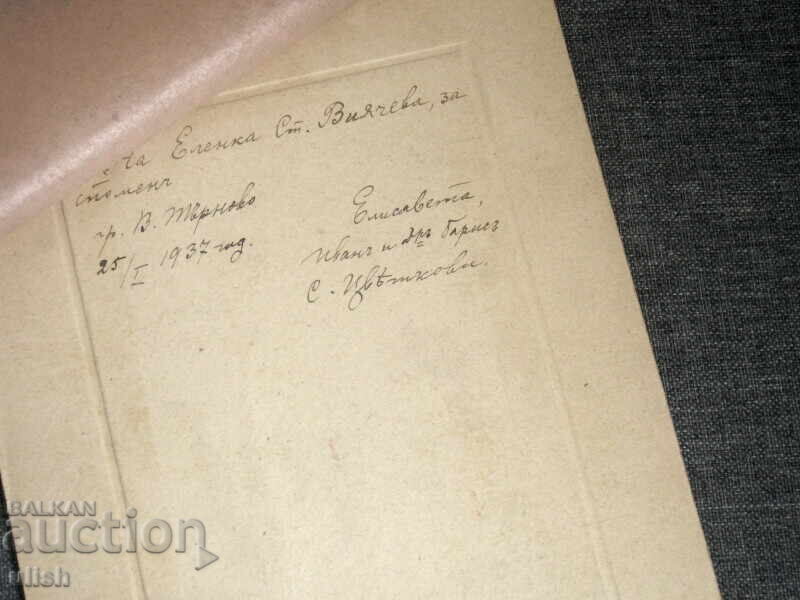 На Еленка Ст. Виячева, за
споменъ
гр. В. Търново
25/I 1937 год.
Елисавета,
Иванъ и Дръ Борисъ
С. Цвѣткови.
BALKAN
auction
ulish